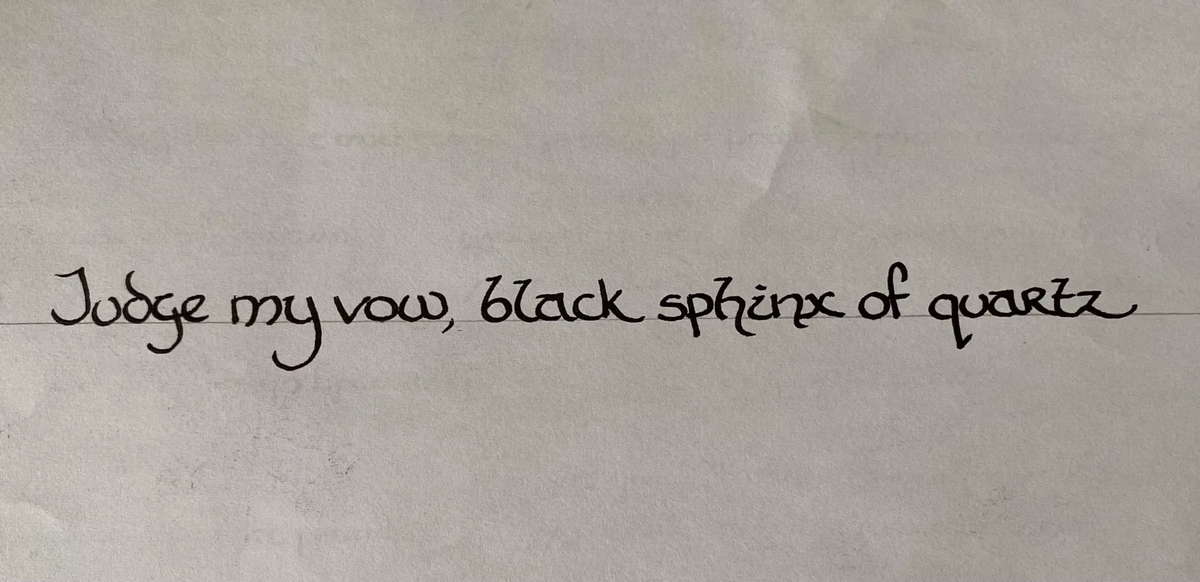 Judge my vow, black sphinx of quartz